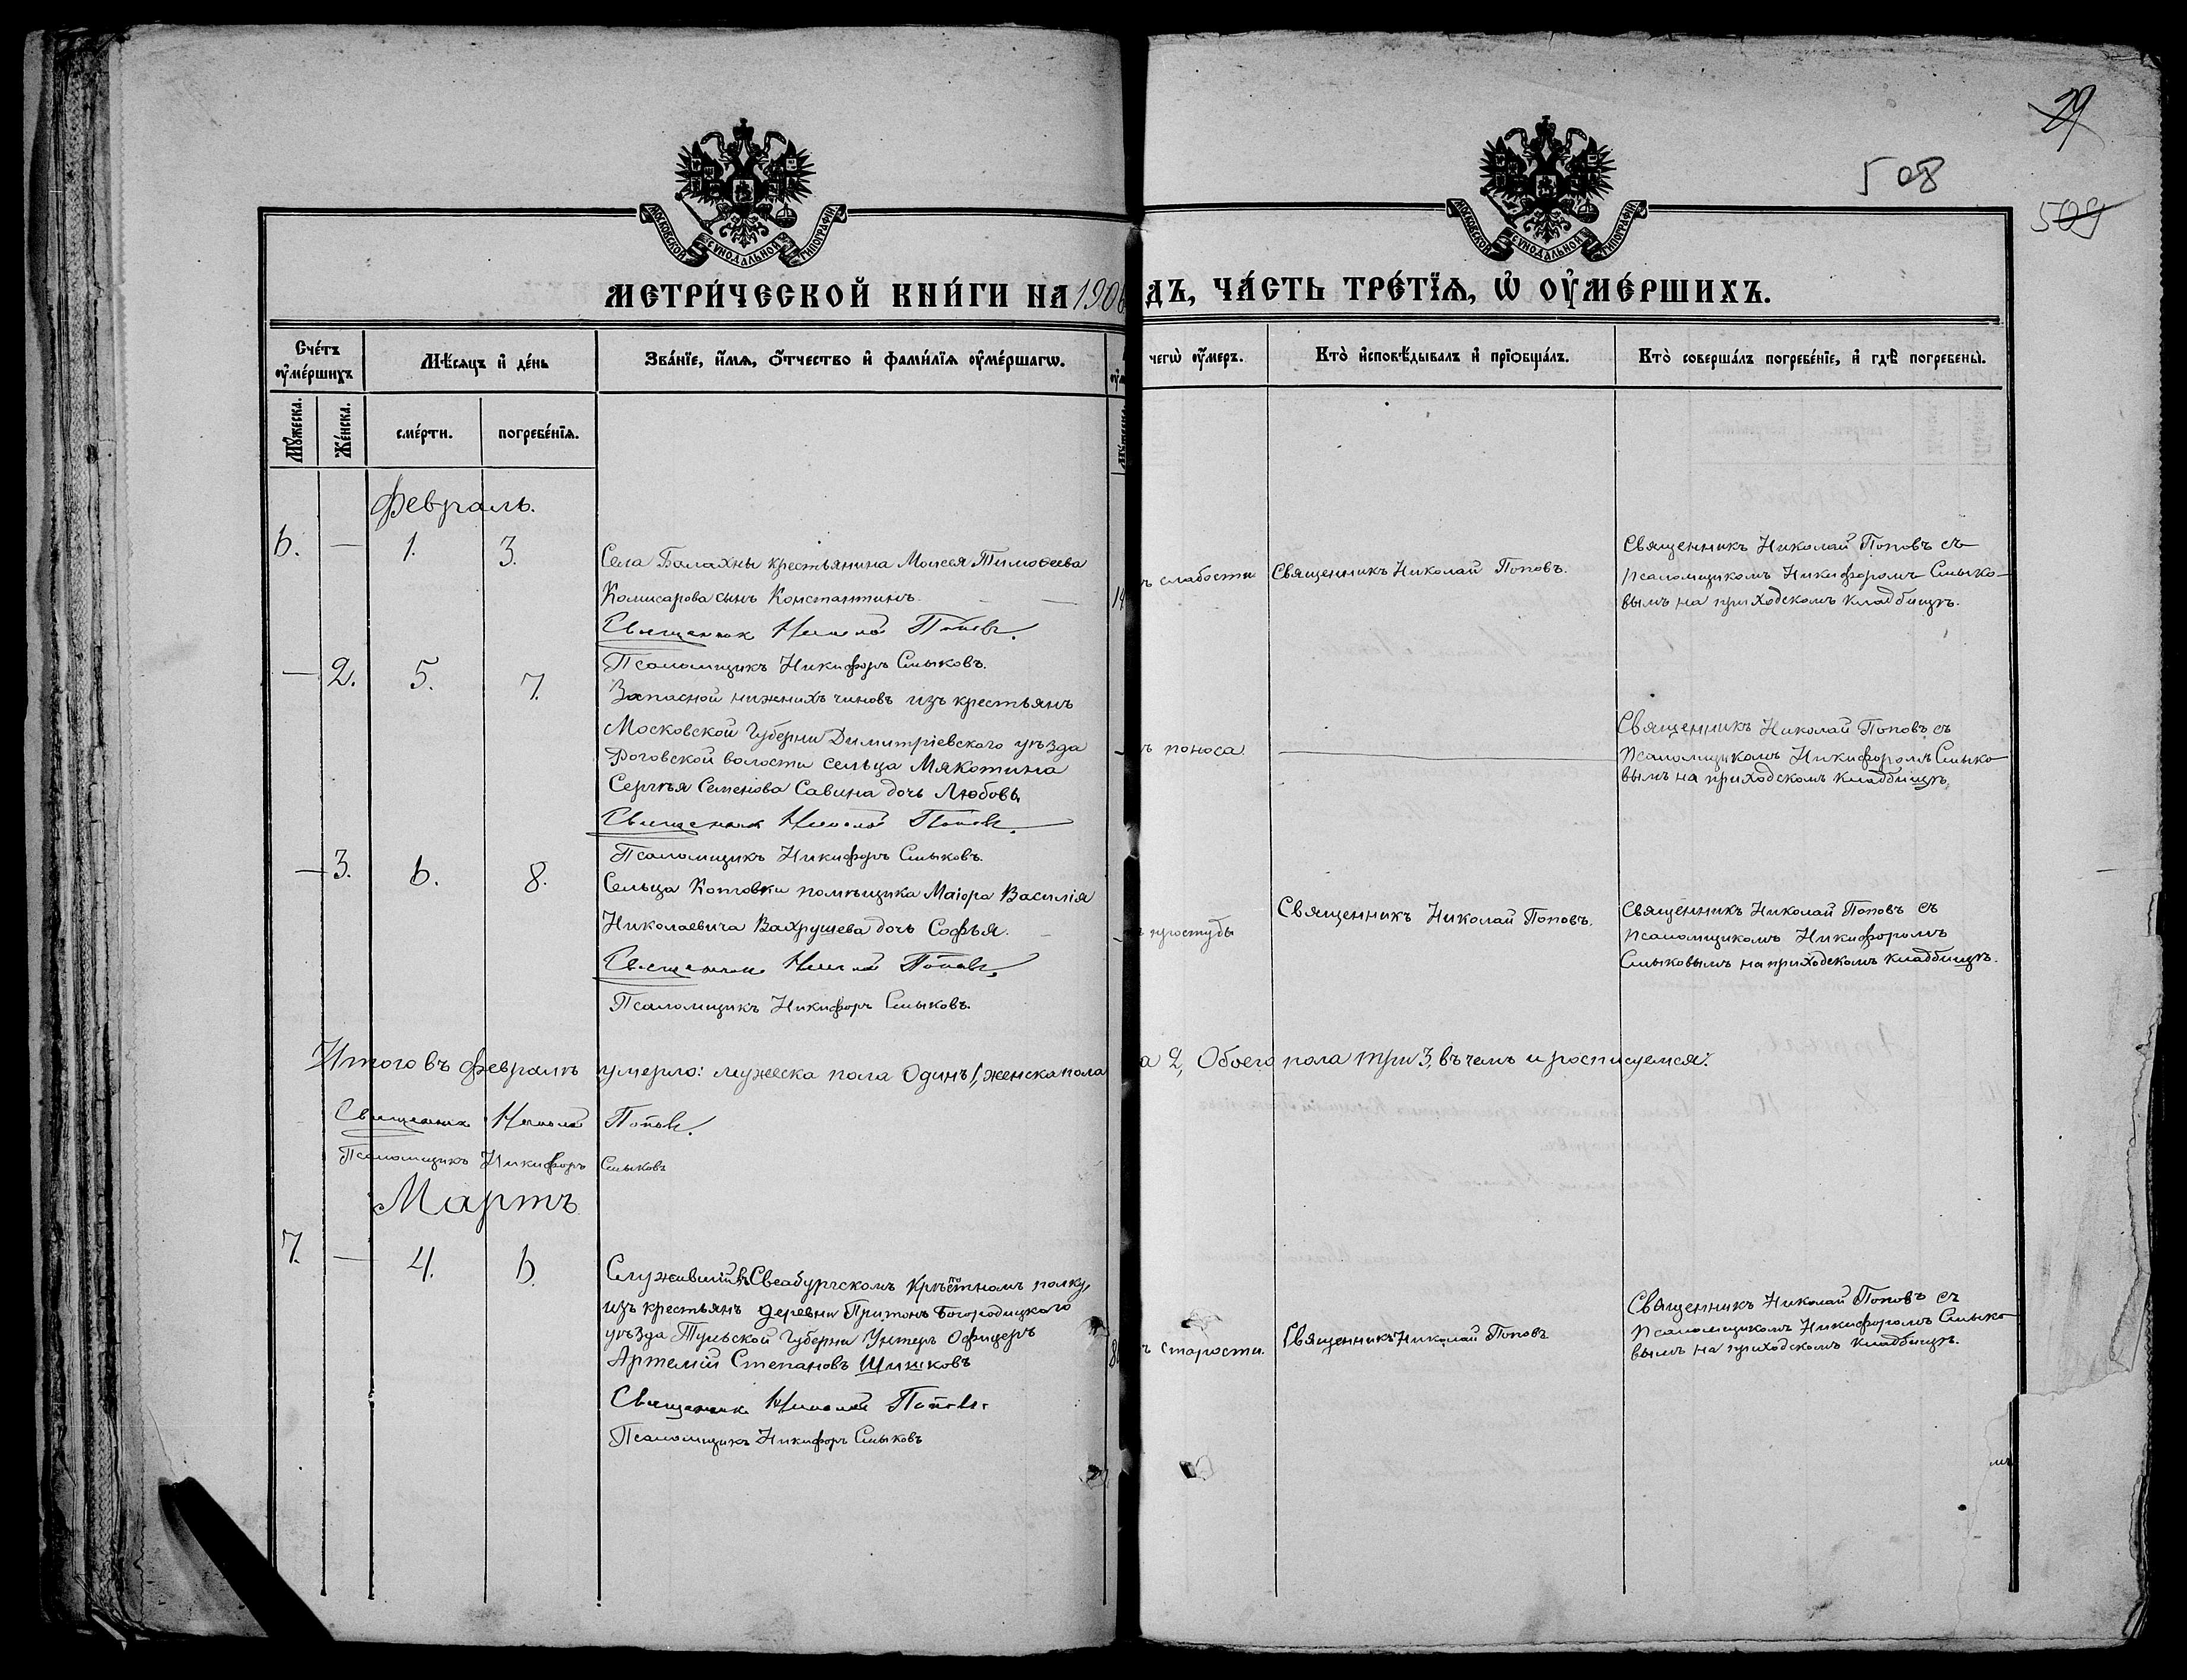 29
508
509
МОСКОВСКОЙ СѴНОДАЛЬНОЙ ТИПОГРАФІИ
МОСКОВСКОЙ СѴНОДАЛЬНОЙ ТИПОГРАФІИ
МЕТРИ́ЧЕСКОЙ КНИ́ГИ НА 1906
ДЪ, ЧА́СТЬ ТРЕ́ТЇѦ, Ѡ҆ ОУ҆МЕ́РШИХЪ.
Сче́тъ оу҆ме́ршихъ
Мѣ́сѧцъ и҆ де́нь
Зва́нїе, и҆́мѧ, ѻ҆́тчество и҆ фами́лїѧ оу҆ме́ршагѡ.
чегѡ̀ оу҆́меръ.
Кто̀ и҆сповѣ́дывалъ и҆ прїѻбща́лъ.
Кто̀ соверша́лъ погребе́нїе, и҆ гдѣ̀ погребены̀.
Мꙋ́жеска.
Же́нска.
сме́рти.
погребе́нїѧ.
Февраль.
6. — 1. 3.
Села Балахны крестьянина Моисея Тимоѳеева
Комисарова сынъ Константинъ.
Священник Николай Поповъ.
Псаломщикъ Никифоръ Смыковъ.
ъ слабости
Священникъ Николай Поповъ.
Священникъ Николай Поповъ съ
псаломщикомъ Никифоромъ Смыко-
вымъ на приходскомъ кладбищѣ.
— 2. 5. 7.
Запасной нижнихъ чиновъ изъ крестьянъ
Московской Губерни Димитріевского уѣзда
Роговской волости сельца Мякотина
Сергѣя Семенова Савина дочь Любовь
Священник Николай Поповъ.
Псаломщикъ Никифоръ Смыковъ.
ъ поноса
Священникъ Николай Поповъ съ
псаломщикомъ Никифоромъ Смыко-
вымъ на приходскомъ кладбищѣ.
— 3. 6. 8.
Сельца Котовки помѣщика Маіора Василія
Николаевича Вахрушева дочь Софья.
Священник Николай Поповъ.
Псаломщикъ Никифоръ Смыковъ.
простуды
Священникъ Николай Поповъ.
Священникъ Николай Поповъ съ
псаломщикомъ Никифоромъ
Смыковымъ на приходскомъ кладбищѣ.
Итого въ февралѣ умерло: мужеска пола Одинъ 1, женска пола
а 2, Обоего пола три 3, въ чемъ и росписуемся:
Священник Николай Поповъ.
Псаломщикъ Никифоръ Смыковъ
Мартъ
7. — 4. 6.
Служившій въ Свеабургскомъ Крѣпостномъ полку,
изъ крестьянъ деревни Притонъ Богородицкого
уѣзда Тульской Губерни Унтеръ Офицеръ
Артемій Степановъ Шишковъ
Священник Николай Поповъ.
Псаломщикъ Никифоръ Смыковъ
ъ старости.
Священникъ Николай Поповъ
Священникъ Николай Поповъ съ
псаломщикомъ Никифоромъ Смыко-
вымъ на приходскомъ кладбищѣ.